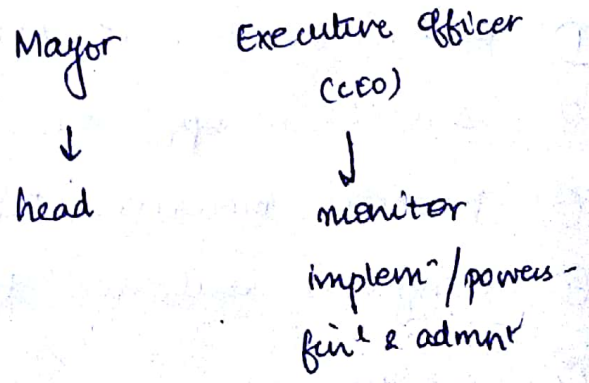 Mayor Executive Officer
(CEO)
↓ ↓
head monitor
implemⁿ / powers -
finˡ & admnʳ